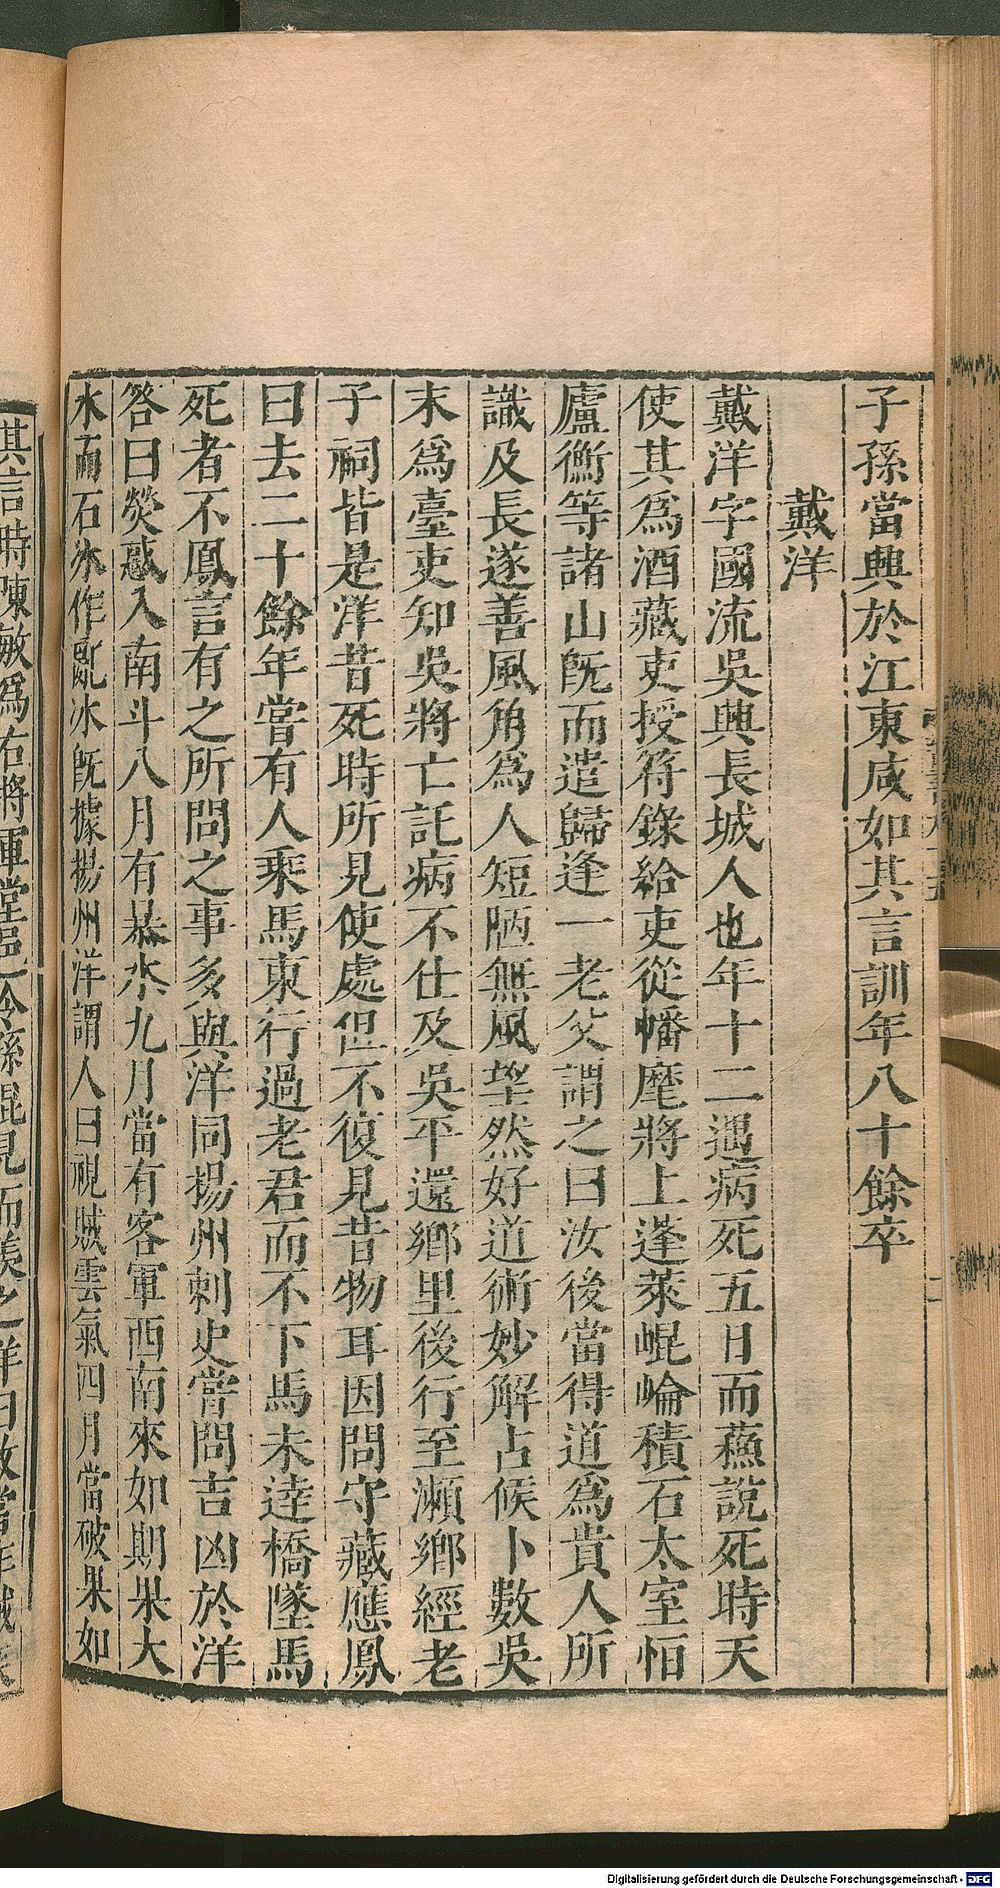 子孫當興於江東咸如其言訓年八十餘卒
戴洋
戴洋字國流吳興長城人也年十二遇病死五日而蘓說死時天
使其爲酒藏吏授符錄給吏從幡麾將上蓬萊崐崘積石太室恒
廬衡等諸山旣而遣歸逢一老父謂之曰汝後當得道爲貴人所
識及長遂善風角爲人短陋無風望然好道術妙解占候卜數吳
末爲臺吏知吳將亡託病不仕及吳平還鄉里後行至瀬鄉經老
子祠皆是洋昔死時所見使處但不復見昔物耳因問守藏應鳳
曰去二十餘年嘗有人乘馬東行過老君而不下馬未逹橋墜馬
死者不鳳言有之所問之事多與洋同揚州刺史嘗問吉凶於洋
答曰熒惑入南斗八月有暴水九月當有客軍西南來如期果大
水而石氷作亂冰旣據揚州洋謂人曰視賊雲氣四月當破果如
其言時陳敏爲右將軍堂邑令孫混見而羨之洋曰敏當作賊
Digitalisierung gefördert durch die Deutsche Forschungsgemeinschaft - DFG